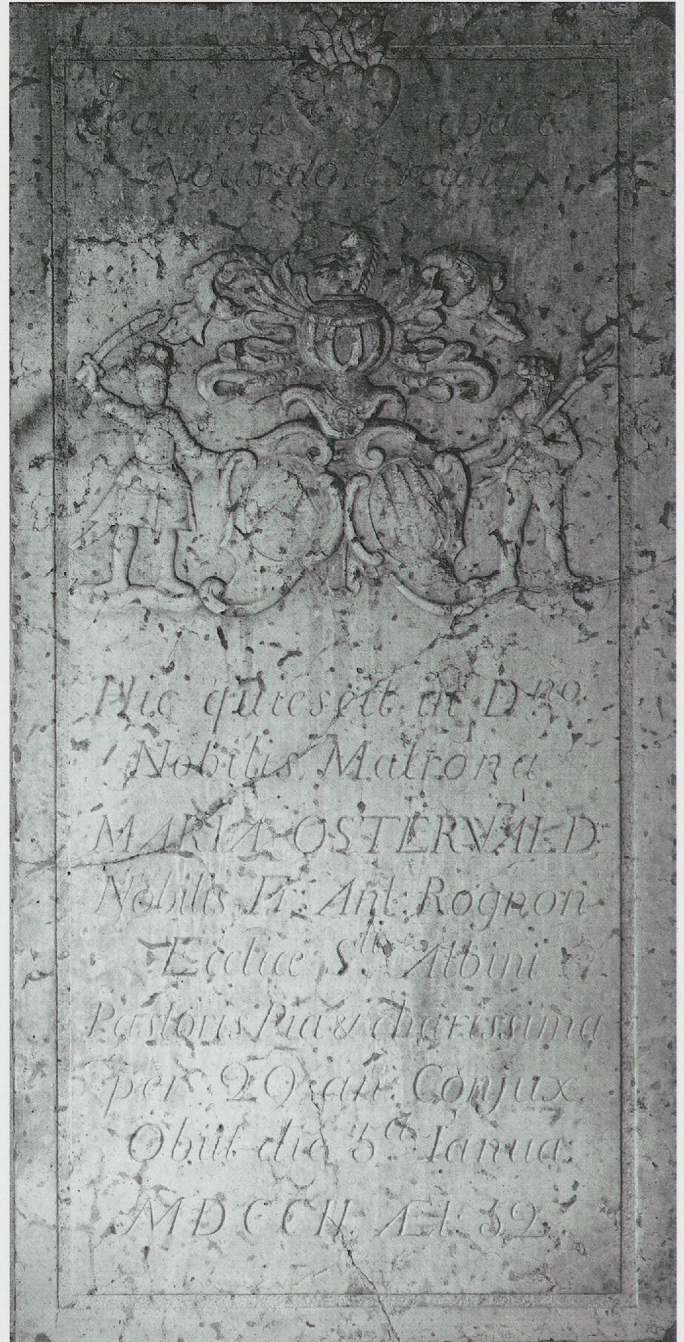 Ce qui nous separe
Nous doit reunir
Hic quiescit in Dno
Nobilis Matrona
MARIA OSTERVALD
Nobilis Fr. Ant. Rognon
Eccliæ Sti Albini
Pastoris Pia & charissima
per 20 an. Conjux.
Obiit die 5a Ianua.
MDCCII Æt. 52